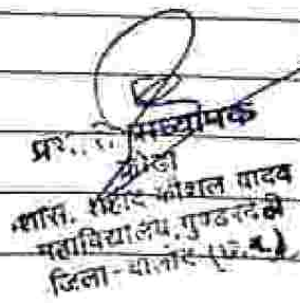 प्र
शास. शहीद कौशल यादव
महाविद्यालय, गुण्डरदेही
जिला-बालोद (छ.ग.)